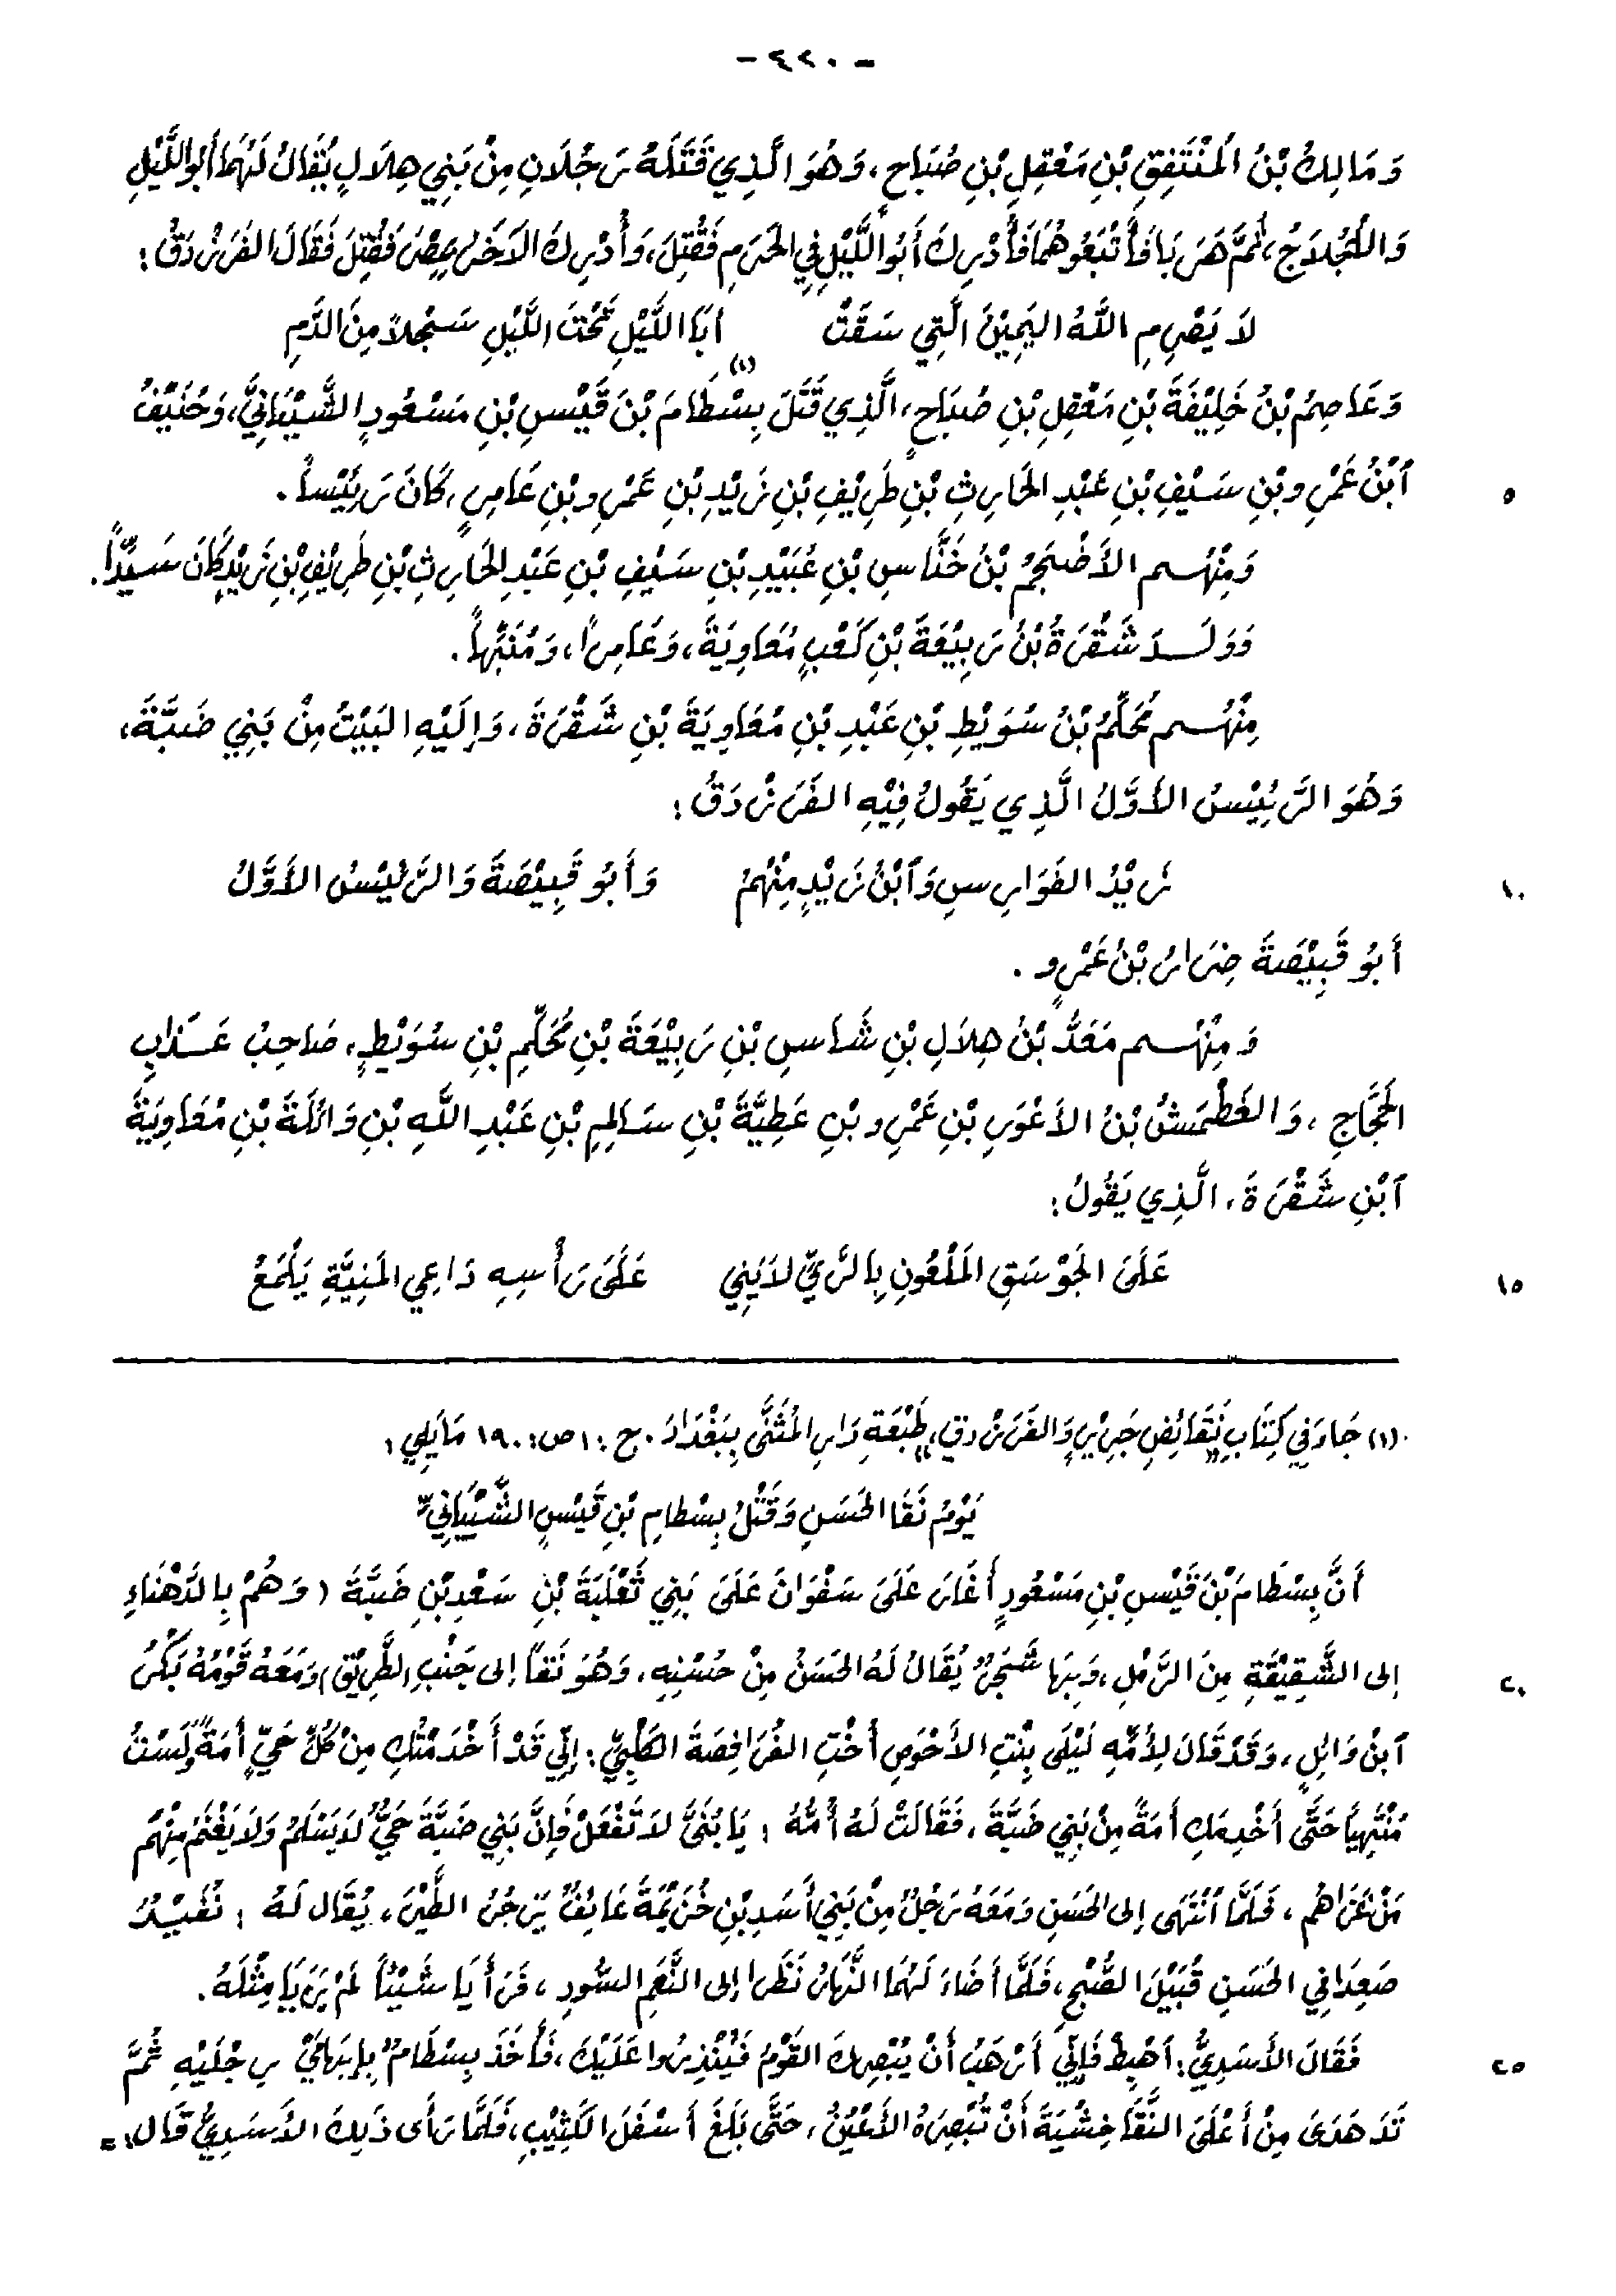 - ٤٢٠ -
وَمَالِكُ بْنُ المُنْتَفِقِ بْنِ مَعْقِلِ بْنِ صُبَاحٍ، وَهُوَ الَّذِي قَتَلَهُ رَجُلَانِ مِنْ بَنِي هِلَالٍ يُقَالُ لَهُمَا أَبُو اللَّيْلِ
وَالجُلَاحُ، ثُمَّ هَرَبَا فَأَتْبَعُوهُمَا فَأُدْرِكَ أَبُو اللَّيْلِ فِي الحَرَمِ فَقُتِلَ، وَأُدْرِكَ الآخَرُ بِمِصْرَ فَقُتِلَ فَقَالَ الفَرَزْدَقُ:
لَا يَصْرِمِ اللَّهُ اليَمِيْنَ الَّتِي سَقَتْ أَبَا اللَّيْلِ تَحْتَ اللَّيْلِ سَجْلاً مِنَ الدَّمِ
وَعَاصِمُ بْنُ خَلِيْفَةَ بْنِ مَعْقِلِ بْنِ صُبَاحٍ، الَّذِي قَتَلَ بِسْطَامَ (١) بْنَ قَيْسِ بْنِ مَسْعُودٍ الشَّيْبَانِيَّ، وَحُنَيْفُ
٥ ٱبْنُ عَمْرِو بْنِ سَيْفِ بْنِ عَبْدِ الحَارِثِ بْنِ طَرِيْفِ بْنِ زَيْدِ بْنِ عَمْرِو بْنِ عَامِرٍ، كَانَ رَئِيْساً.
وَمِنْهُم الأَضْجَمُ بْنُ خَنَّاسِ بْنِ عُبَيْدِ بْنِ سَيْفِ بْنِ عَبْدِ الحَارِثِ بْنِ طَرِيْفِ بْنِ زَيْدٍ كَانَ سَيِّداً.
وَوَلَدَ شَقْرَةُ بْنُ رَبِيْعَةَ بْنِ كَعْبٍ مُعَاوِيَةَ، وَعَامِراً، وَمُنَبِّهاً.
مِنْهُم مُحَلِّمُ بْنُ سُوَيْطِ بْنِ عَبْدِ بْنِ مُعَاوِيَةَ بْنِ شَقْرَةَ، وَإِلَيْهِ البَيْتُ مِنْ بَنِي ضَبَّةَ،
وَهُوَ الرَّئِيْسُ الأَوَّلُ الَّذِي يَقُولُ فِيْهِ الفَرَزْدَقُ:
١٠ زَيْدُ الفَوَارِسِ وَٱبْنُ زَيْدٍ مِنْهُمُ وَأَبُو قَبِيْصَةَ وَالرَّئِيْسُ الأَوَّلُ
أَبُو قَبِيْصَةَ ضِرَارُ بْنُ عَمْرٍو.
وَمِنْهُم مَعَدُّ بْنُ هِلَالِ بْنِ شَاسِ بْنِ رَبِيْعَةَ بْنِ مُحَلِّمِ بْنِ سُوَيْطٍ، صَاحِبُ عَذَابِ
الحَجَّاجِ، وَالغَطَمَّشُ بْنُ الأَعْوَرِ بْنِ عَمْرِو بْنِ عَطِيَّةَ بْنِ سَالِمِ بْنِ عَبْدِ اللَّهِ بْنِ وَائِلَةَ بْنِ مُعَاوِيَةَ
ٱبْنِ شَقْرَةَ، الَّذِي يَقُولُ:
١٥ عَلَى الجَوْسَقِ المَلْعُونِ بِالرَّيِّ لَا يَنِي عَلَى رَأْسِهِ دَاعِي المَنِيَّةِ يَلْمَعُ
(١) جَاءَ فِي كِتَابِ «نَقَائِضِ جَرِيْرٍ وَالفَرَزْدَقِ» طَبْعَةِ دَارِ المُثَنَّى بِبَغْدَادَ. ج: ١ ص: ١٩٠ مَا يَلِي:
يَوْمُ نَقَا الحَسَنِ وَقَتْلُ بِسْطَامِ بْنِ قَيْسٍ الشَّيْبَانِيِّ
أَنَّ بِسْطَامَ بْنَ قَيْسِ بْنِ مَسْعُودٍ أَغَارَ عَلَى سَفَوَانَ عَلَى بَنِي ثَعْلَبَةَ بْنِ سَعْدِ بْنِ ضَبَّةَ (وَهُمْ بِالدَّهْنَاءِ
٢٠ إلى الشَّقِيْقَةِ مِنَ الرَّمْلِ، وَبِهَا شَجَرٌ يُقَالُ لَهُ الحَسَنُ مِنْ حُسْنِهِ، وَهُوَ نَقاً إلى جَنْبِ الطَّرِيْقِ) وَمَعَهُ قَوْمُهُ بَكْرُ
ٱبْنُ وَائِلٍ، وَقَدْ قَالَ لِأُمِّهِ لَيْلَى بِنْتِ الأَحْوَصِ أُخْتِ الفُرَافِصَةَ الكَلْبِيِّ: إِنِّي قَدْ أَخْدَمْتُكِ مِنْ كُلِّ حَيٍّ أَمَةً وَلَسْتُ
مُنْتَهِياً حَتَّى أَخْدِمَكِ أَمَةً مِنْ بَنِي ضَبَّةَ، فَقَالَتْ لَهُ أُمُّهُ: يَا بُنَيَّ لَا تَفْعَلْ فَإِنَّ بَنِي ضَبَّةَ حَيٌّ لَا يَسْلَمُ وَلَا يَغْنَمُ مِنْهُمْ
مَنْ غَزَاهُم، فَلَمَّا ٱنْتَهَى إلى الحَسَنِ وَمَعَهُ رَجُلٌ مِنْ بَنِي أَسَدِ بْنِ خُزَيْمَةَ عَائِفٌ يَزْجُرُ الطَّيْرَ، يُقَالُ لَهُ: نُقَيْدٌ
صَعِدَا فِي الحَسَنِ قُبَيْلَ الصُّبْحِ، فَلَمَّا أَضَاءَ لَهُمَا النَّهَارُ نَظَرَا إلى النَّعَمِ السُّودِ، فَرَأَيَا شَيْئاً لَمْ يَرَيَا مِثْلَهُ.
٢٥ فَقَالَ الأَسَدِيُّ: ٱهْبِطْ فَإِنِّي أَرْهَبُ أَنْ يُبْصِرَكَ القَوْمُ فَيُنْذِرُوا عَلَيْكَ، فَأَخَذَ بِسْطَامٌ بِإِبْهَامَيْ رِجْلَيْهِ ثُمَّ
تَدَهْدَى مِنْ أَعْلَى النَّقَا خِشْيَةَ أَنْ تُبْصِرَهُ الأَعْيُنُ، حَتَّى بَلَغَ أَسْفَلَ الكَثِيْبِ، فَلَمَّا رَأَى ذَلِكَ الأَسَدِيُّ قَالَ: =